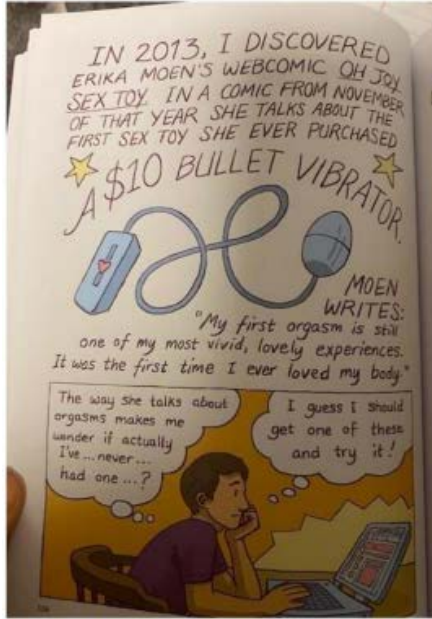 IN 2013, I DISCOVERED
ERIKA MOEN'S WEBCOMIC OH JOY
SEX TOY. IN A COMIC FROM NOVEMBER
OF THAT YEAR SHE TALKS ABOUT THE
FIRST SEX TOY SHE EVER PURCHASED
A $10 BULLET VIBRATOR.
MOEN
WRITES:
"My first orgasm is still
one of my most vivid, lovely experiences.
It was the first time I ever loved my body."
The way she talks about
orgasms makes me
wonder if actually
I've ... never ...
had one ...?
I guess I should
get one of these
and try it!